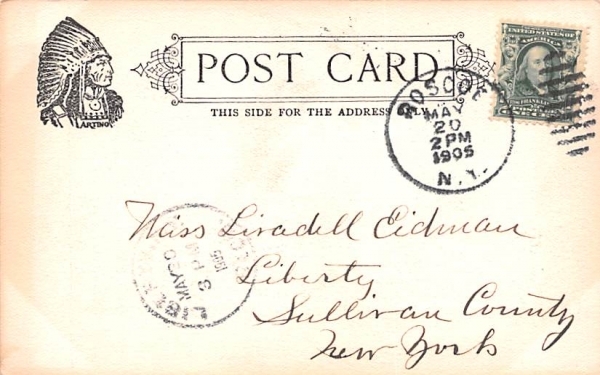 POST CARD.
THIS SIDE FOR THE ADDRESS ONLY.
ARTINO
UNITED STATES OF
FRANKLIN
ROSCOE
MAY
20
2 PM
1905
N.Y.
Miss Liradell Eidman
Liberty
Sullivan County
New York
MAY 20
3 PM
1905